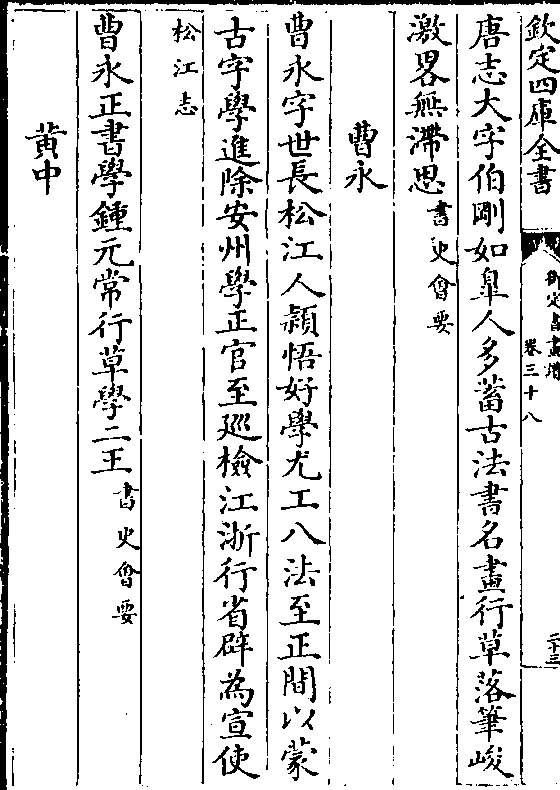 欽定四庫全書
御定書畫譜
卷三十八
二十三
唐志大字伯剛如臯人多蓄古法書名畫行草落筆峻
激畧無滯思書史會要
曹永
曹永字世長松江人頴悟好學尤工八法至正間以蒙
古字學進除安州學正官至廵檢江浙行省辟為宣使
松江志
曹永正書學鍾元常行草學二王書史會要
黃中